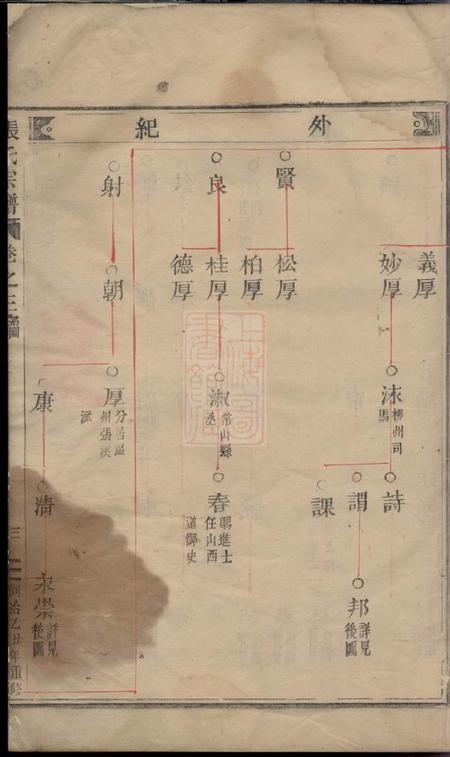 外紀
義厚
妙厚
沐 柳州司馬
詩
謂
課
邦 詳見後圖
賢
松厚
柏厚
良
桂厚
德厚
淑 常山縣丞
春 賜進士任山西道御史
射
朝
厚
康
清
永崇 詳見後圖
張氏宗譜 卷之三
三
同治乙丑年重修
上海圖書館藏